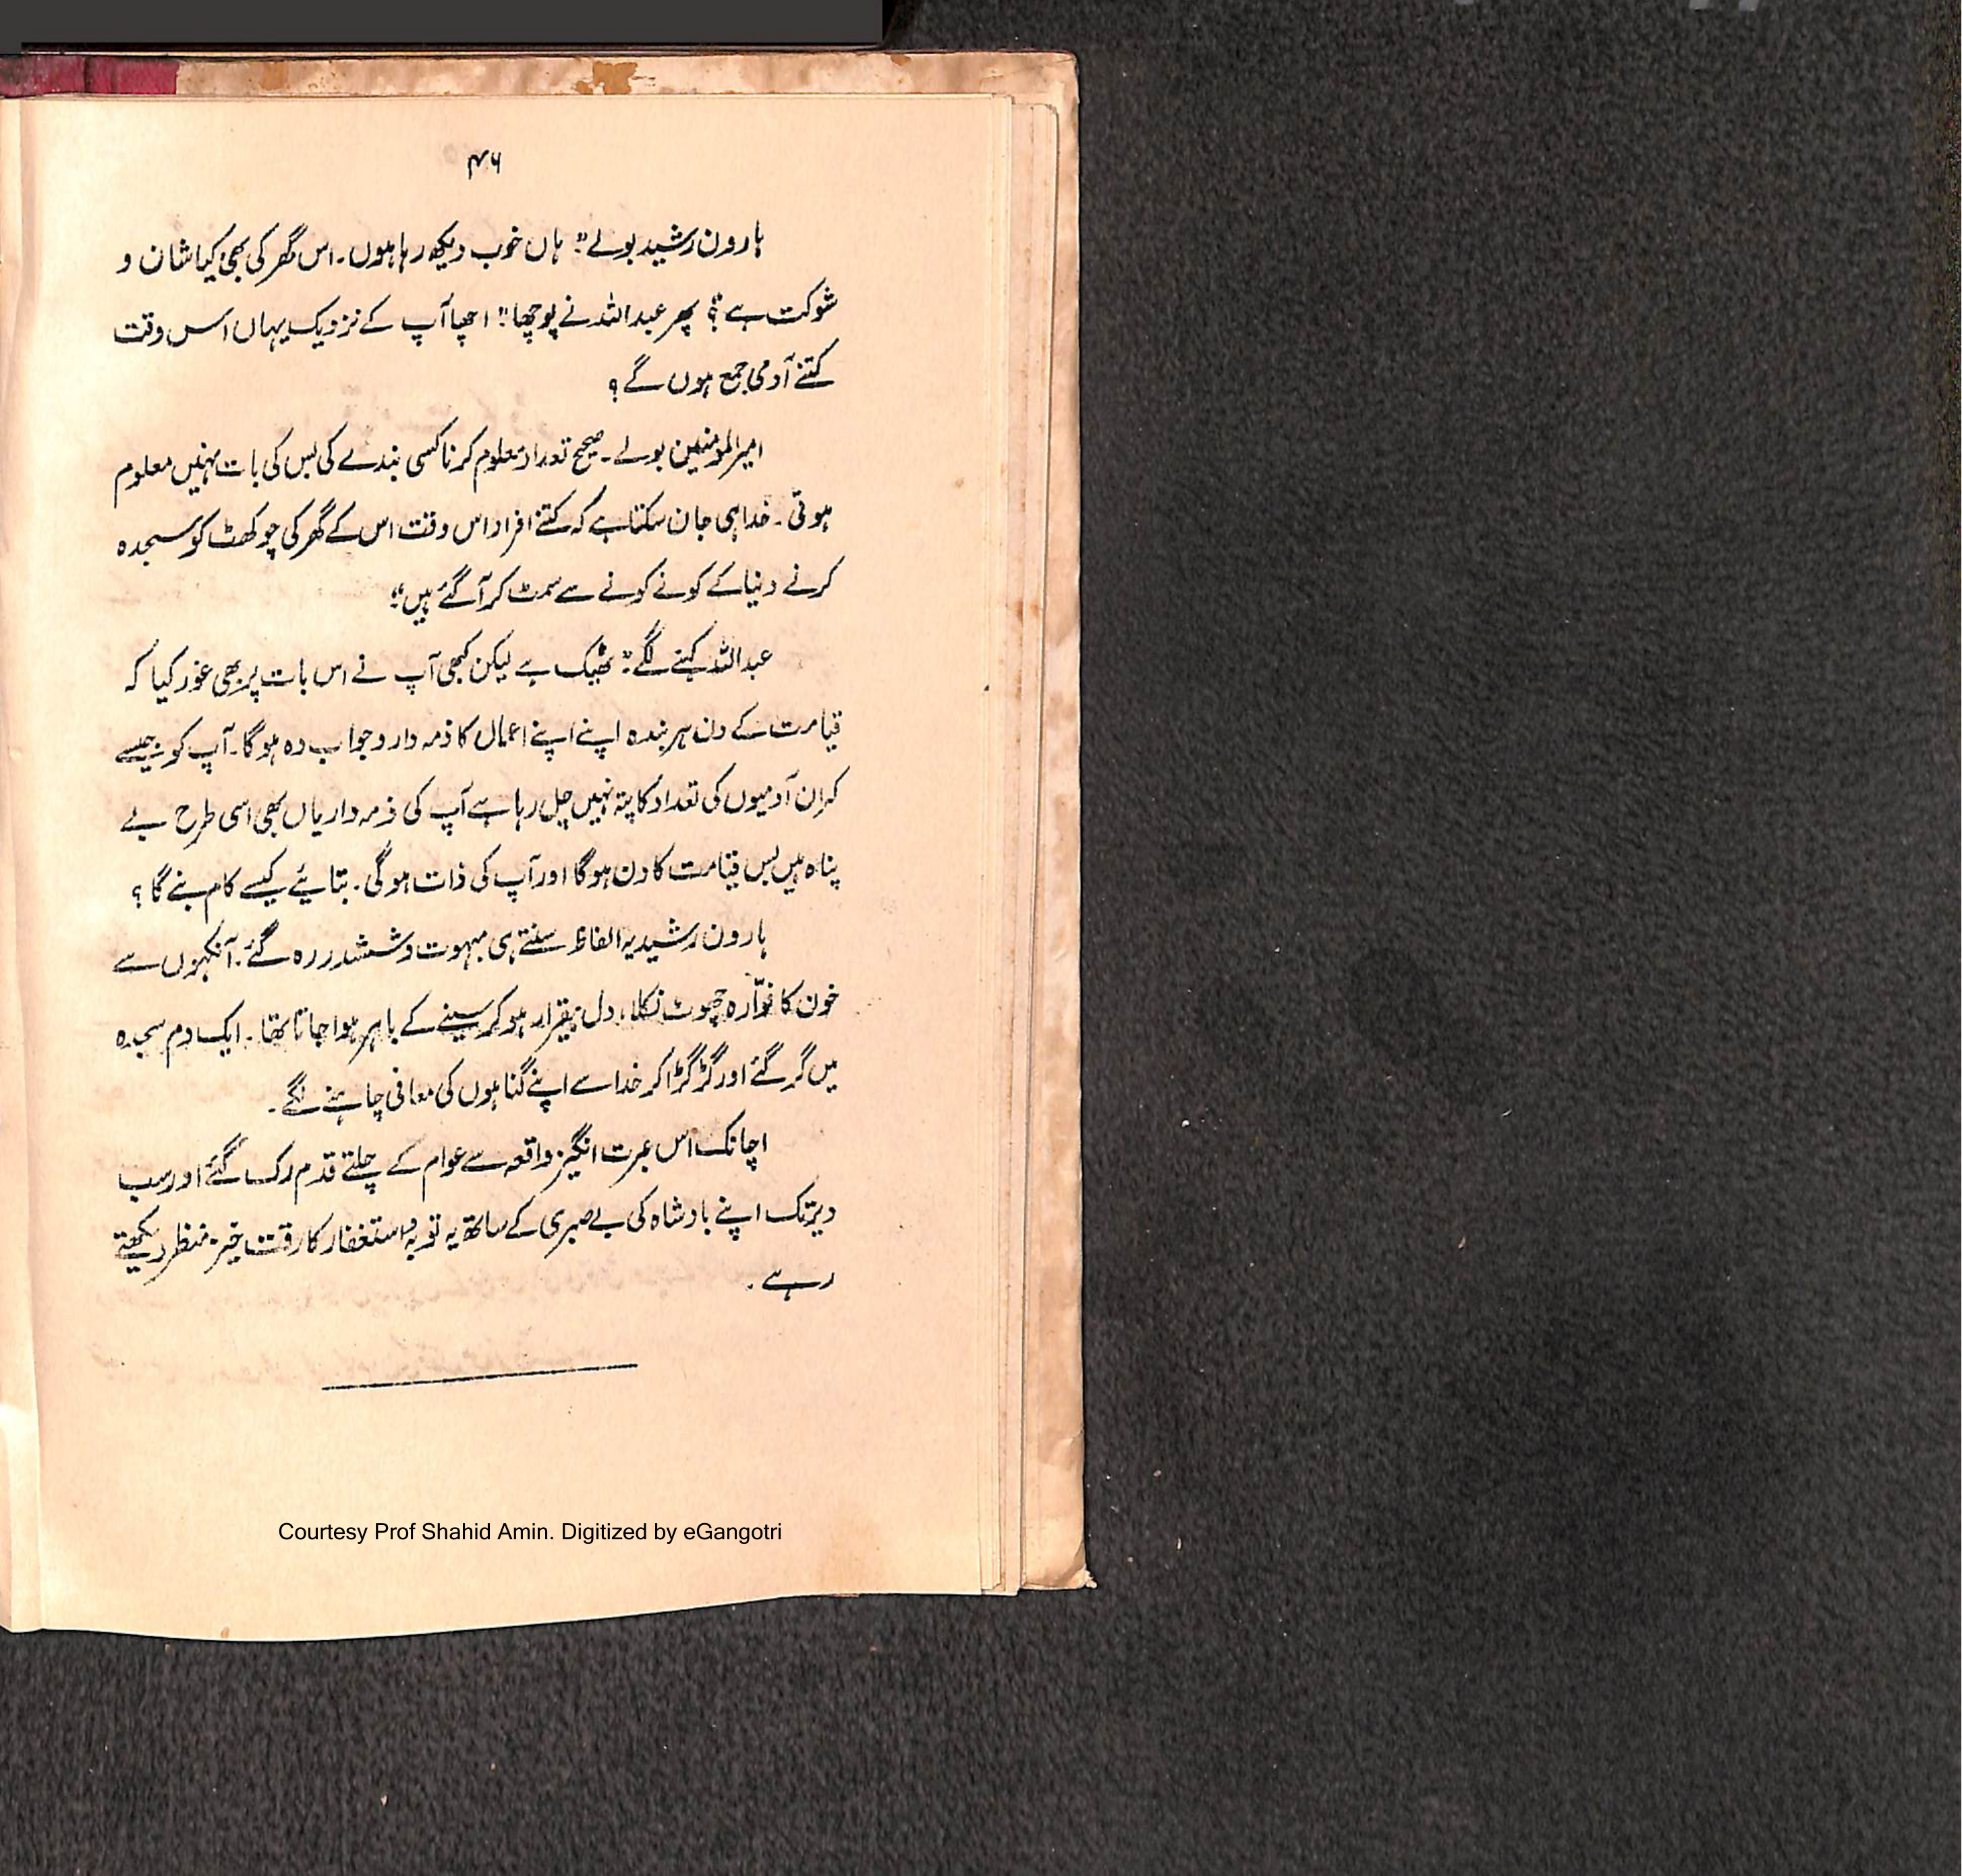 ۴۶
ہارون رشید بولے "ہاں خوب دیکھ رہا ہوں۔ اس گھر کی بھی کیا شان و
شوکت ہے"؟ پھر عبداللہ نے پوچھا "اچھا آپ کے نزدیک یہاں اس وقت
کتنے آدمی جمع ہوں گے؟
امیرالمومنین بولے۔ صحیح تعداد معلوم کرنا کسی بندے کی بس کی بات نہیں معلوم
ہوتی۔ خدا ہی جان سکتا ہے کہ کتنے افراد اس وقت اس کے گھر کی چوکھٹ کو سجدہ
کرنے دنیا کے کونے کونے سے سمٹ کر آگئے ہیں"
عبداللہ کہنے لگے "ٹھیک ہے لیکن کبھی آپ نے اس بات پر بھی غور کیا کہ
قیامت کے دن ہر بندہ اپنے اپنے اعمال کا ذمہ دار و جواب دہ ہوگا۔ آپ کو جیسے
کہ ان آدمیوں کی تعداد کا پتہ نہیں چل رہا ہے آپ کی ذمہ داریاں بھی اسی طرح بے
پناہ ہیں بس قیامت کا دن ہوگا اور آپ کی ذات ہوگی۔ بتائیے کیسے کام بنے گا؟
ہارون رشید یہ الفاظ سنتے ہی مبہوت و ششدر رہ گئے۔ آنکہوں سے
خون کا فوّارہ چھوٹ نکلا، دل بیقرار ہوکر سینے کے باہر ہوا جاتا تھا۔ ایک دم سجدہ
میں گر گئے اور گڑگڑا کر خدا سے اپنے گناہوں کی معافی چاہنے لگے۔
اچانک اس عبرت انگیز واقعہ سے عوام کے چلتے قدم رک گئے اور سب
دیر تک اپنے بادشاہ کی بے صبری کے ساتھ یہ توبہ و استغفار کا رقت خیز منظر دیکھتے
رہے۔
Courtesy Prof Shahid Amin. Digitized by eGangotri